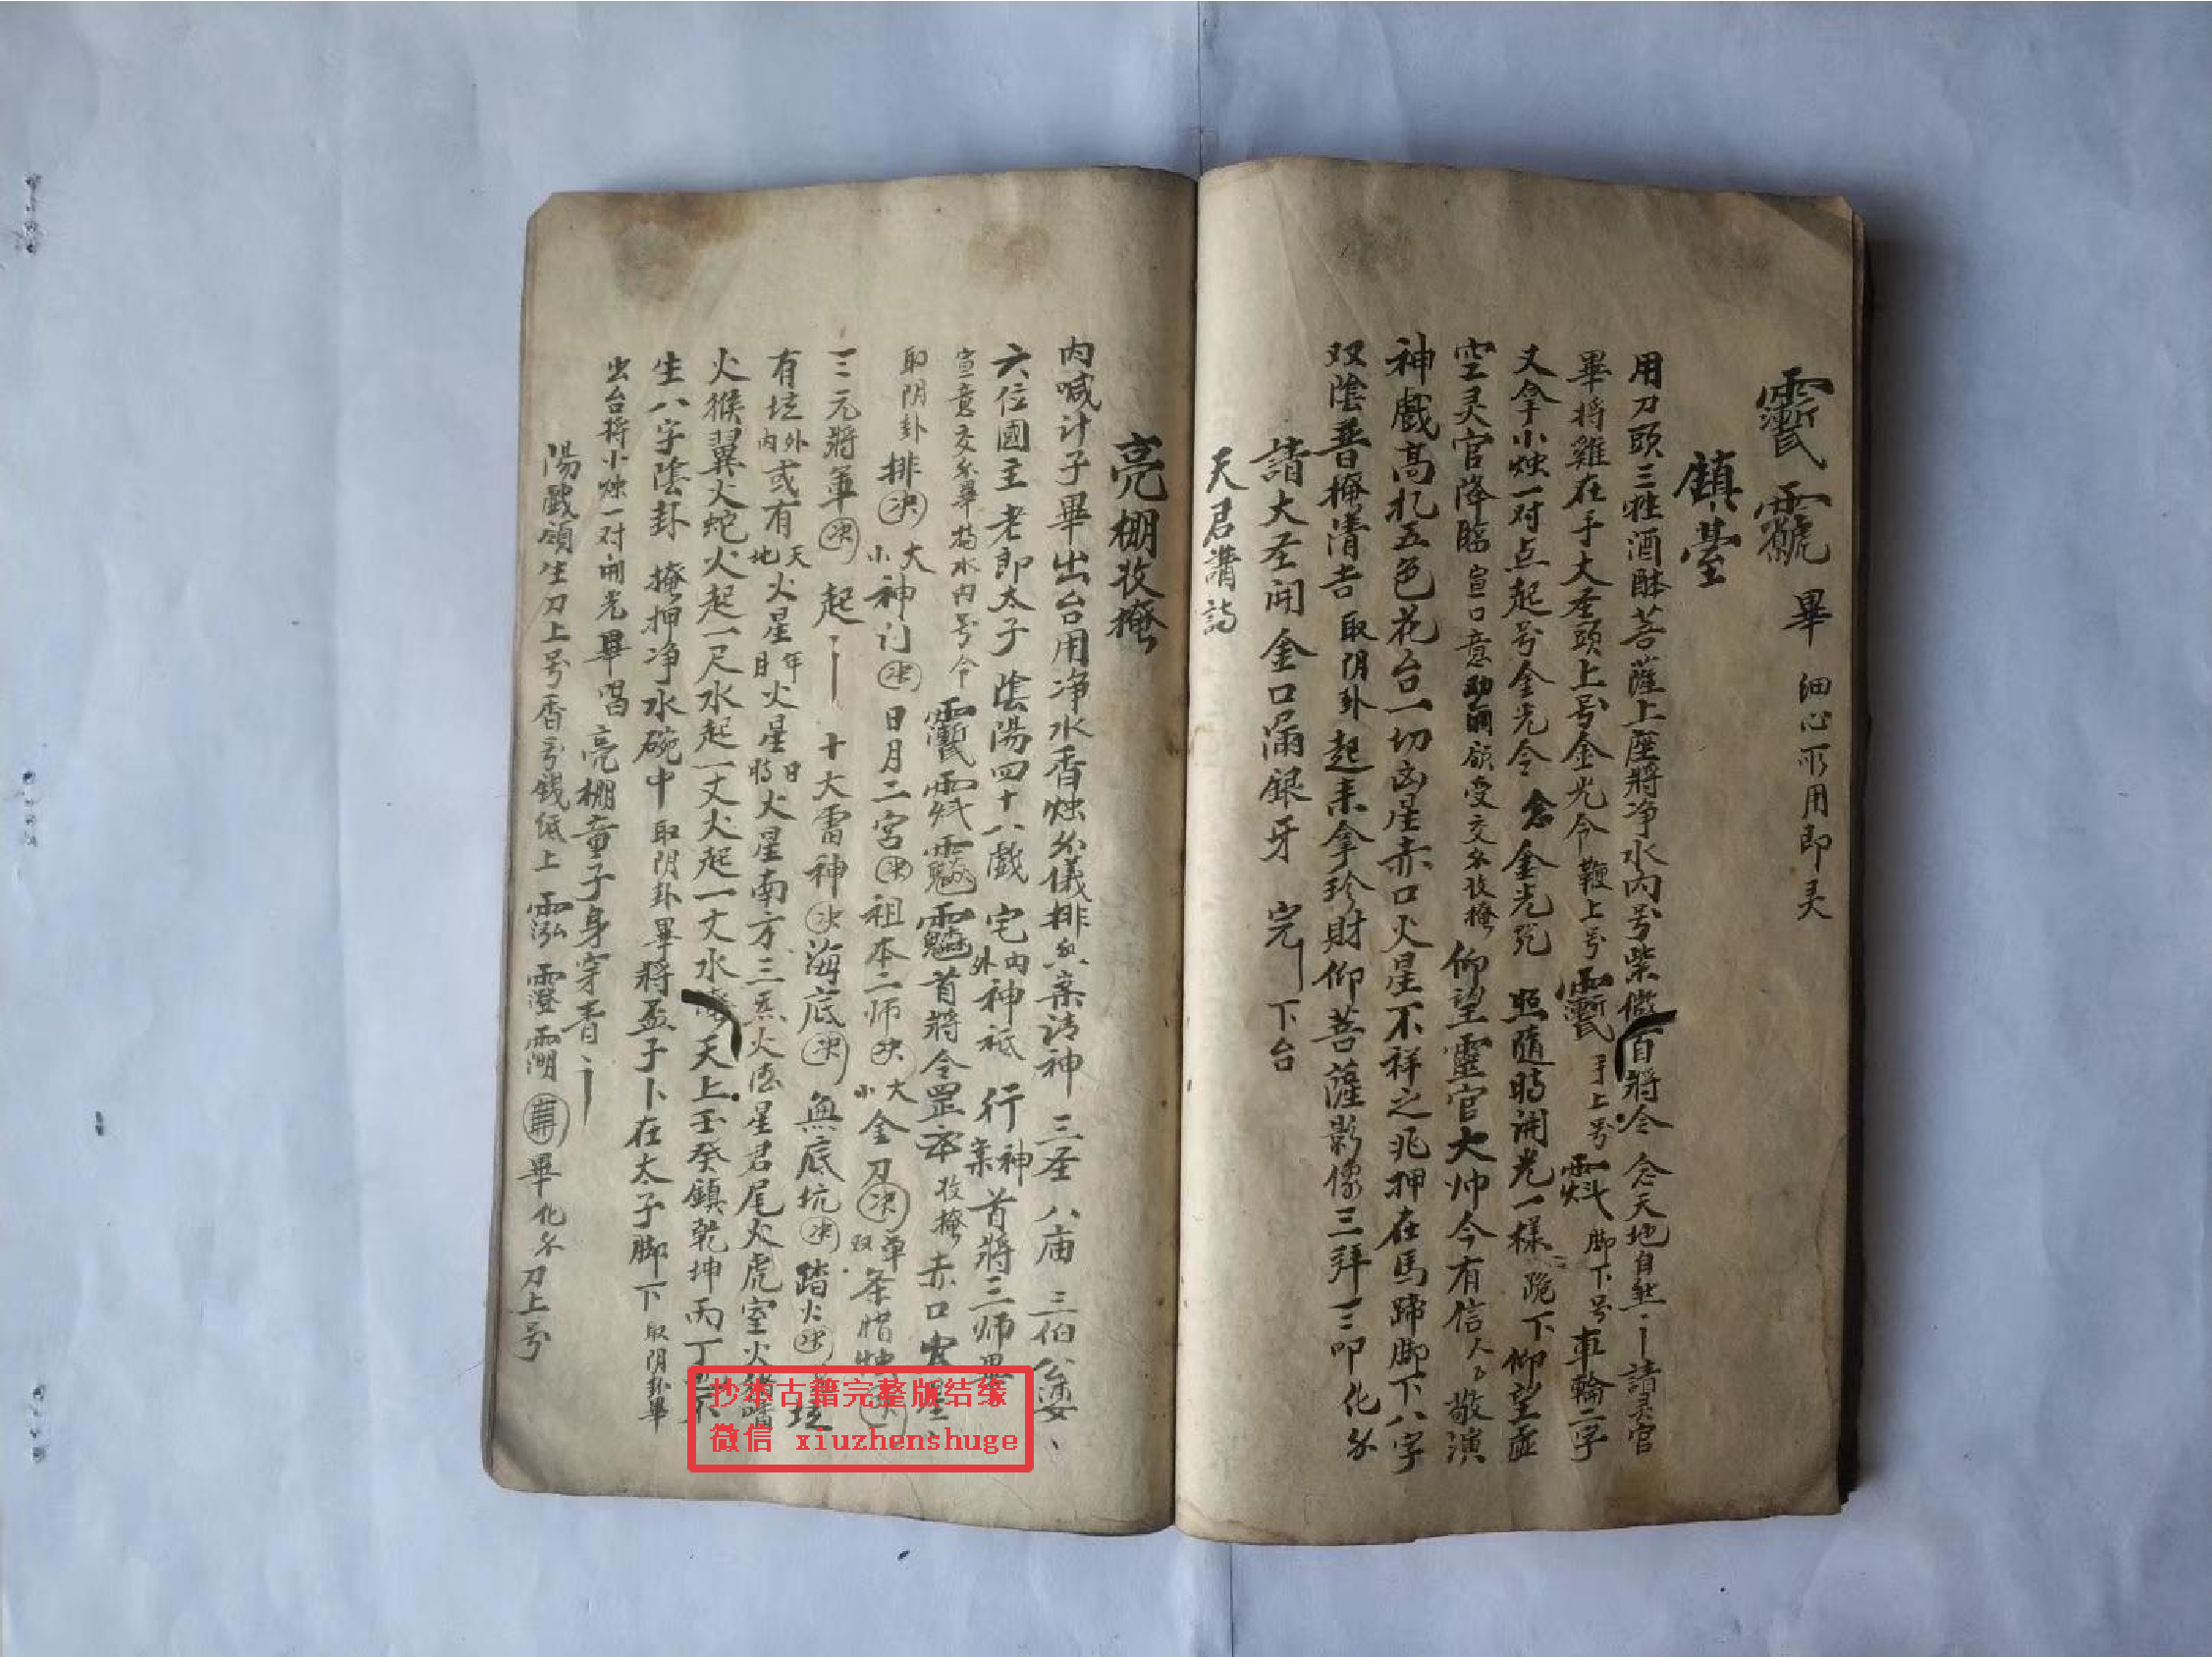 畢 细心所用即灵
鎮臺
用刀頭三牲酒酥菩薩上座將净水内号紫微百將令 念天地自然 請灵官
畢将雞在手大圣頭上号金光令 鞭上号 手上号 脚下号 車輪二字
又拿小烛一对点起号金光令 念金光咒 照隨時開光一樣 跪下仰望虚
空灵官降臨 宣口意 領受交 收掩 仰望靈官大帅今有信人 敬演
神戲高扎五色花台一切凶星赤口火星不祥之兆押在馬蹄脚下八字
双陰普掩清吉 取阴卦 起來拿珍財仰菩薩影像三拜三叩化
請大圣開金口滿銀牙 完 下台
天君讚詩
亮棚收掩
内喊计子畢出台用净水香烛 儀排 請神 三圣 八庙 三伯公婆
六位國主 老郎太子 陰陽四十八戲 宅内外神祇 行 神 首將三师
宣意交 畢 水内号令 首將令罡 收掩 赤口 星
取阴卦 排决 大小神门决 日月二宮决 祖本二师决 大小金刀决 单双
三元將軍决 起 十大雷神决 海底决 無底坑决 踏火决
有坟内外或有天地火星年日火星日時火星南方三炁火德星君尾火虎室火猪觜
火猴翼火蛇火起一尺水起一丈火起一丈水 天上壬癸鎮乾坤丙丁
生八字陰卦 掩押净水碗中 取阴卦畢將盃子卜在太子脚下 取阴卦畢
出台将小烛一对開光畢唱 亮棚童子身穿青
陽戲領生刀上号香号錢纸上 畢化 刀上号
抄本古籍完整版结缘
微信 xiuzhenshuge